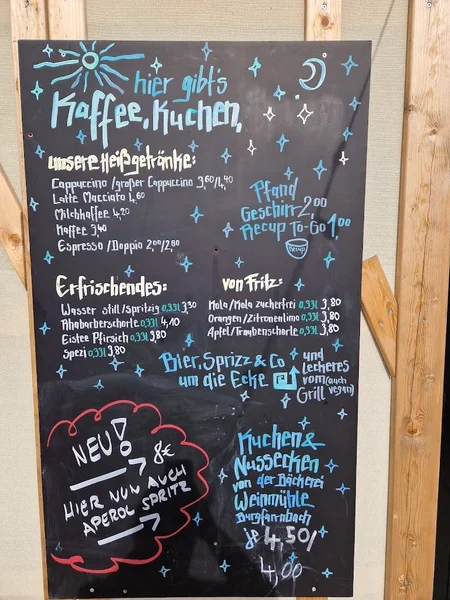 hier gibt's
Kaffee, Kuchen,
unsere Heißgetränke:
Cappuccino / großer Cappuccino 3,60/4,40
Latte Macciato 4,60
Milchkaffee 4,20
Kaffee 3,40
Espresso / Doppio 2,00/2,80
Pfand
Geschirr 2,00
Recup To-Go 1,00
recup
Erfrischendes:
Wasser still/spritzig 0,33l 3,30
Rhabarberschorle 0,33l 4,10
Eistee Pfirsich 0,33l 3,80
Spezi 0,33l 3,80
von Fritz:
Kola/Kola zuckerfrei 0,33l 3,80
Orangen/Zitronenlimo 0,33l 3,80
Apfel/Traubenschorle 0,33l 3,80
Bier, Sprizz & Co
um die Ecke
und
Leckeres
vom (auch
Grill vegan)
NEU!
8€
HIER NUN AUCH
APEROL SPRITZ
Kuchen &
Nussecken
von der Bäckerei
Weinmühle
Burgfarrnbach
je 4,50/
4,00